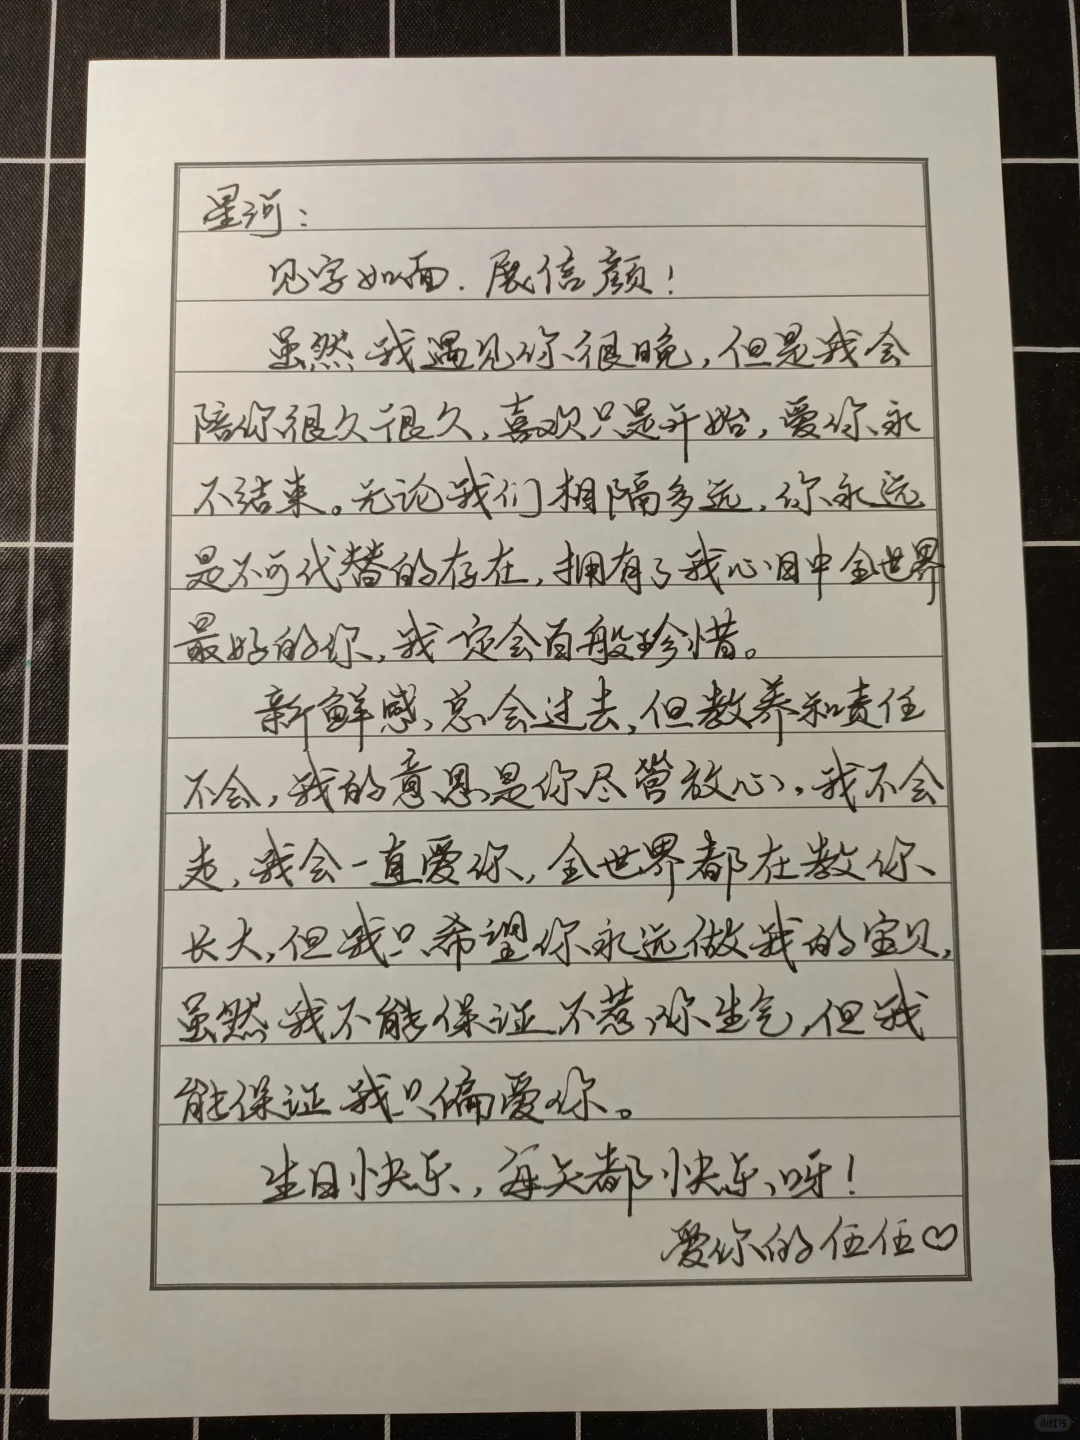 星河:
见字如面.展信颜!
虽然我遇见你很晚,但是我会
陪你很久很久,喜欢只是开始,爱你永
不结束。无论我们相隔多远,你永远
是不可代替的存在,拥有了我心目中全世界
最好的你,我一定会百般珍惜。
新鲜感总会过去,但教养和责任
不会,我的意思是你尽管放心,我不会
走,我会一直爱你,全世界都在教你
长大,但我只希望你永远做我的宝贝,
虽然我不能保证不惹你生气,但我
能保证我只偏爱你。
生日快乐,每天都快乐呀!
爱你的伍任♡
小红书